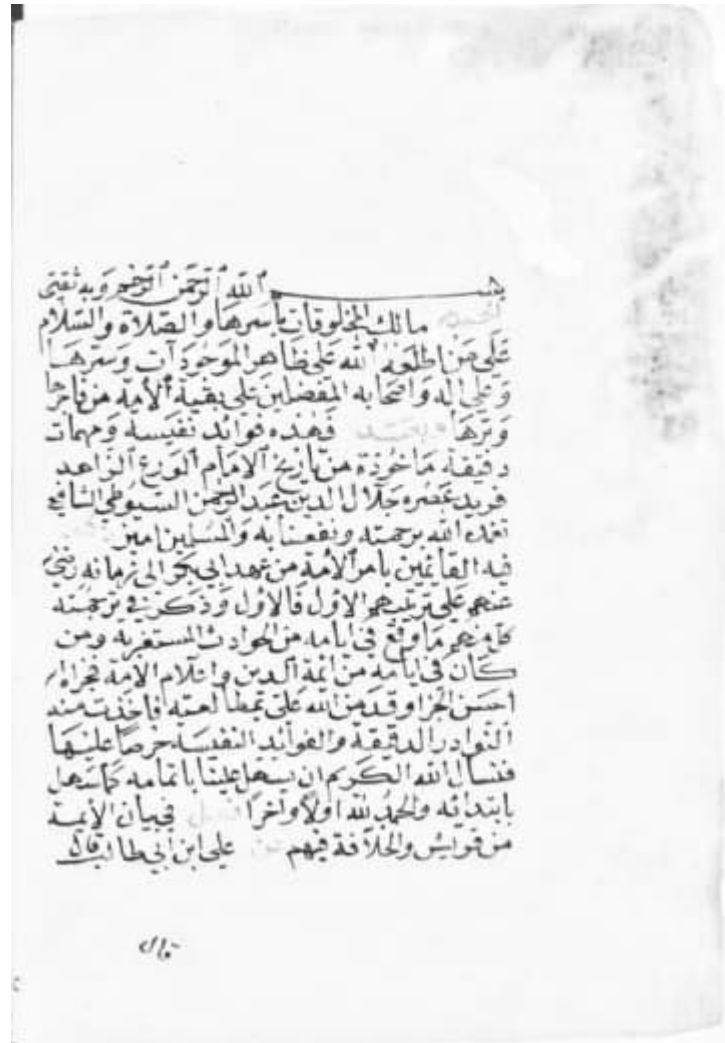 بسم الله الرحمن الرحيم وبه ثقتي
الحمد لله مالك المخلوقات باسرها والصلاة والسلام
على من اطلعه الله على ظاهر الموجودات وسرها
وعلى اله واصحابه المفضلين على بقية الأمة من فاجرها
وبرها وبعد فهذه فوائد نفيسة ومهمات
دقيقة ماخوذة من تاريخ الامام الورع الزاهد
فريد عصره جلال الدين عبد الرحمن السيوطي الشافعي
تغمده الله برحمته ونفعنا به والمسلمين امين
فيه القائمين بامر الأمة من عهد ابي بكر الى زمانه رضي
عنهم على ترتيبهم الاول فالاول وذكر في ترجمته
كل منهم ما وقع في ايامه من الحوادث المستغربة ومن
كان في ايامه من ائمة الدين واعلام الامة فجزاه
احسن الجزا وقد من الله على بمطالعته فاخذت منه
النوادر الدقيقة والفوائد النفيسة حرصا عليها
فنسال الله الكريم ان يسهل علينا باتمامه كما سهل
بابتدائه والحمد لله اولا واخرا فصل في بيان الايمة
من قريش والخلافة فيهم عن علي ابن ابي طالب قال
قال